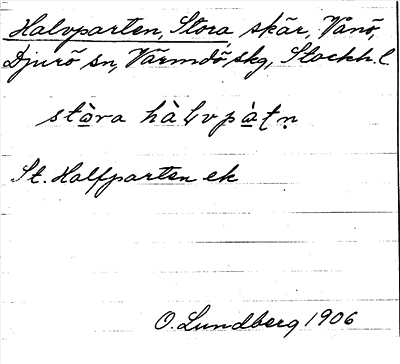 Halvparten, Stora, skär, Vånö,
Djurö sn, Värmdö skg, Stockh. l
stòra hàlvpàṭṇ
St. Halfparten ek
O. Lundberg 1906